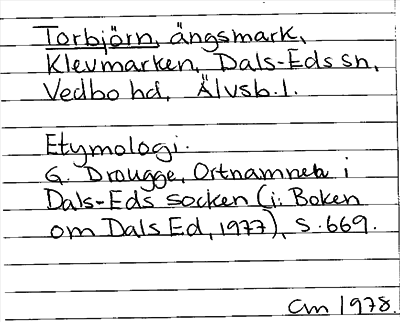 Torbjörn, ängsmark,
Klevmarken, Dals-Eds sn,
Vedbo hd, Älvsb.l.
Etymologi.
G. Drougge, Ortnamnen i
Dals-Eds socken (i: Boken
om Dals Ed, 1977), s. 669.
Cm 1978.